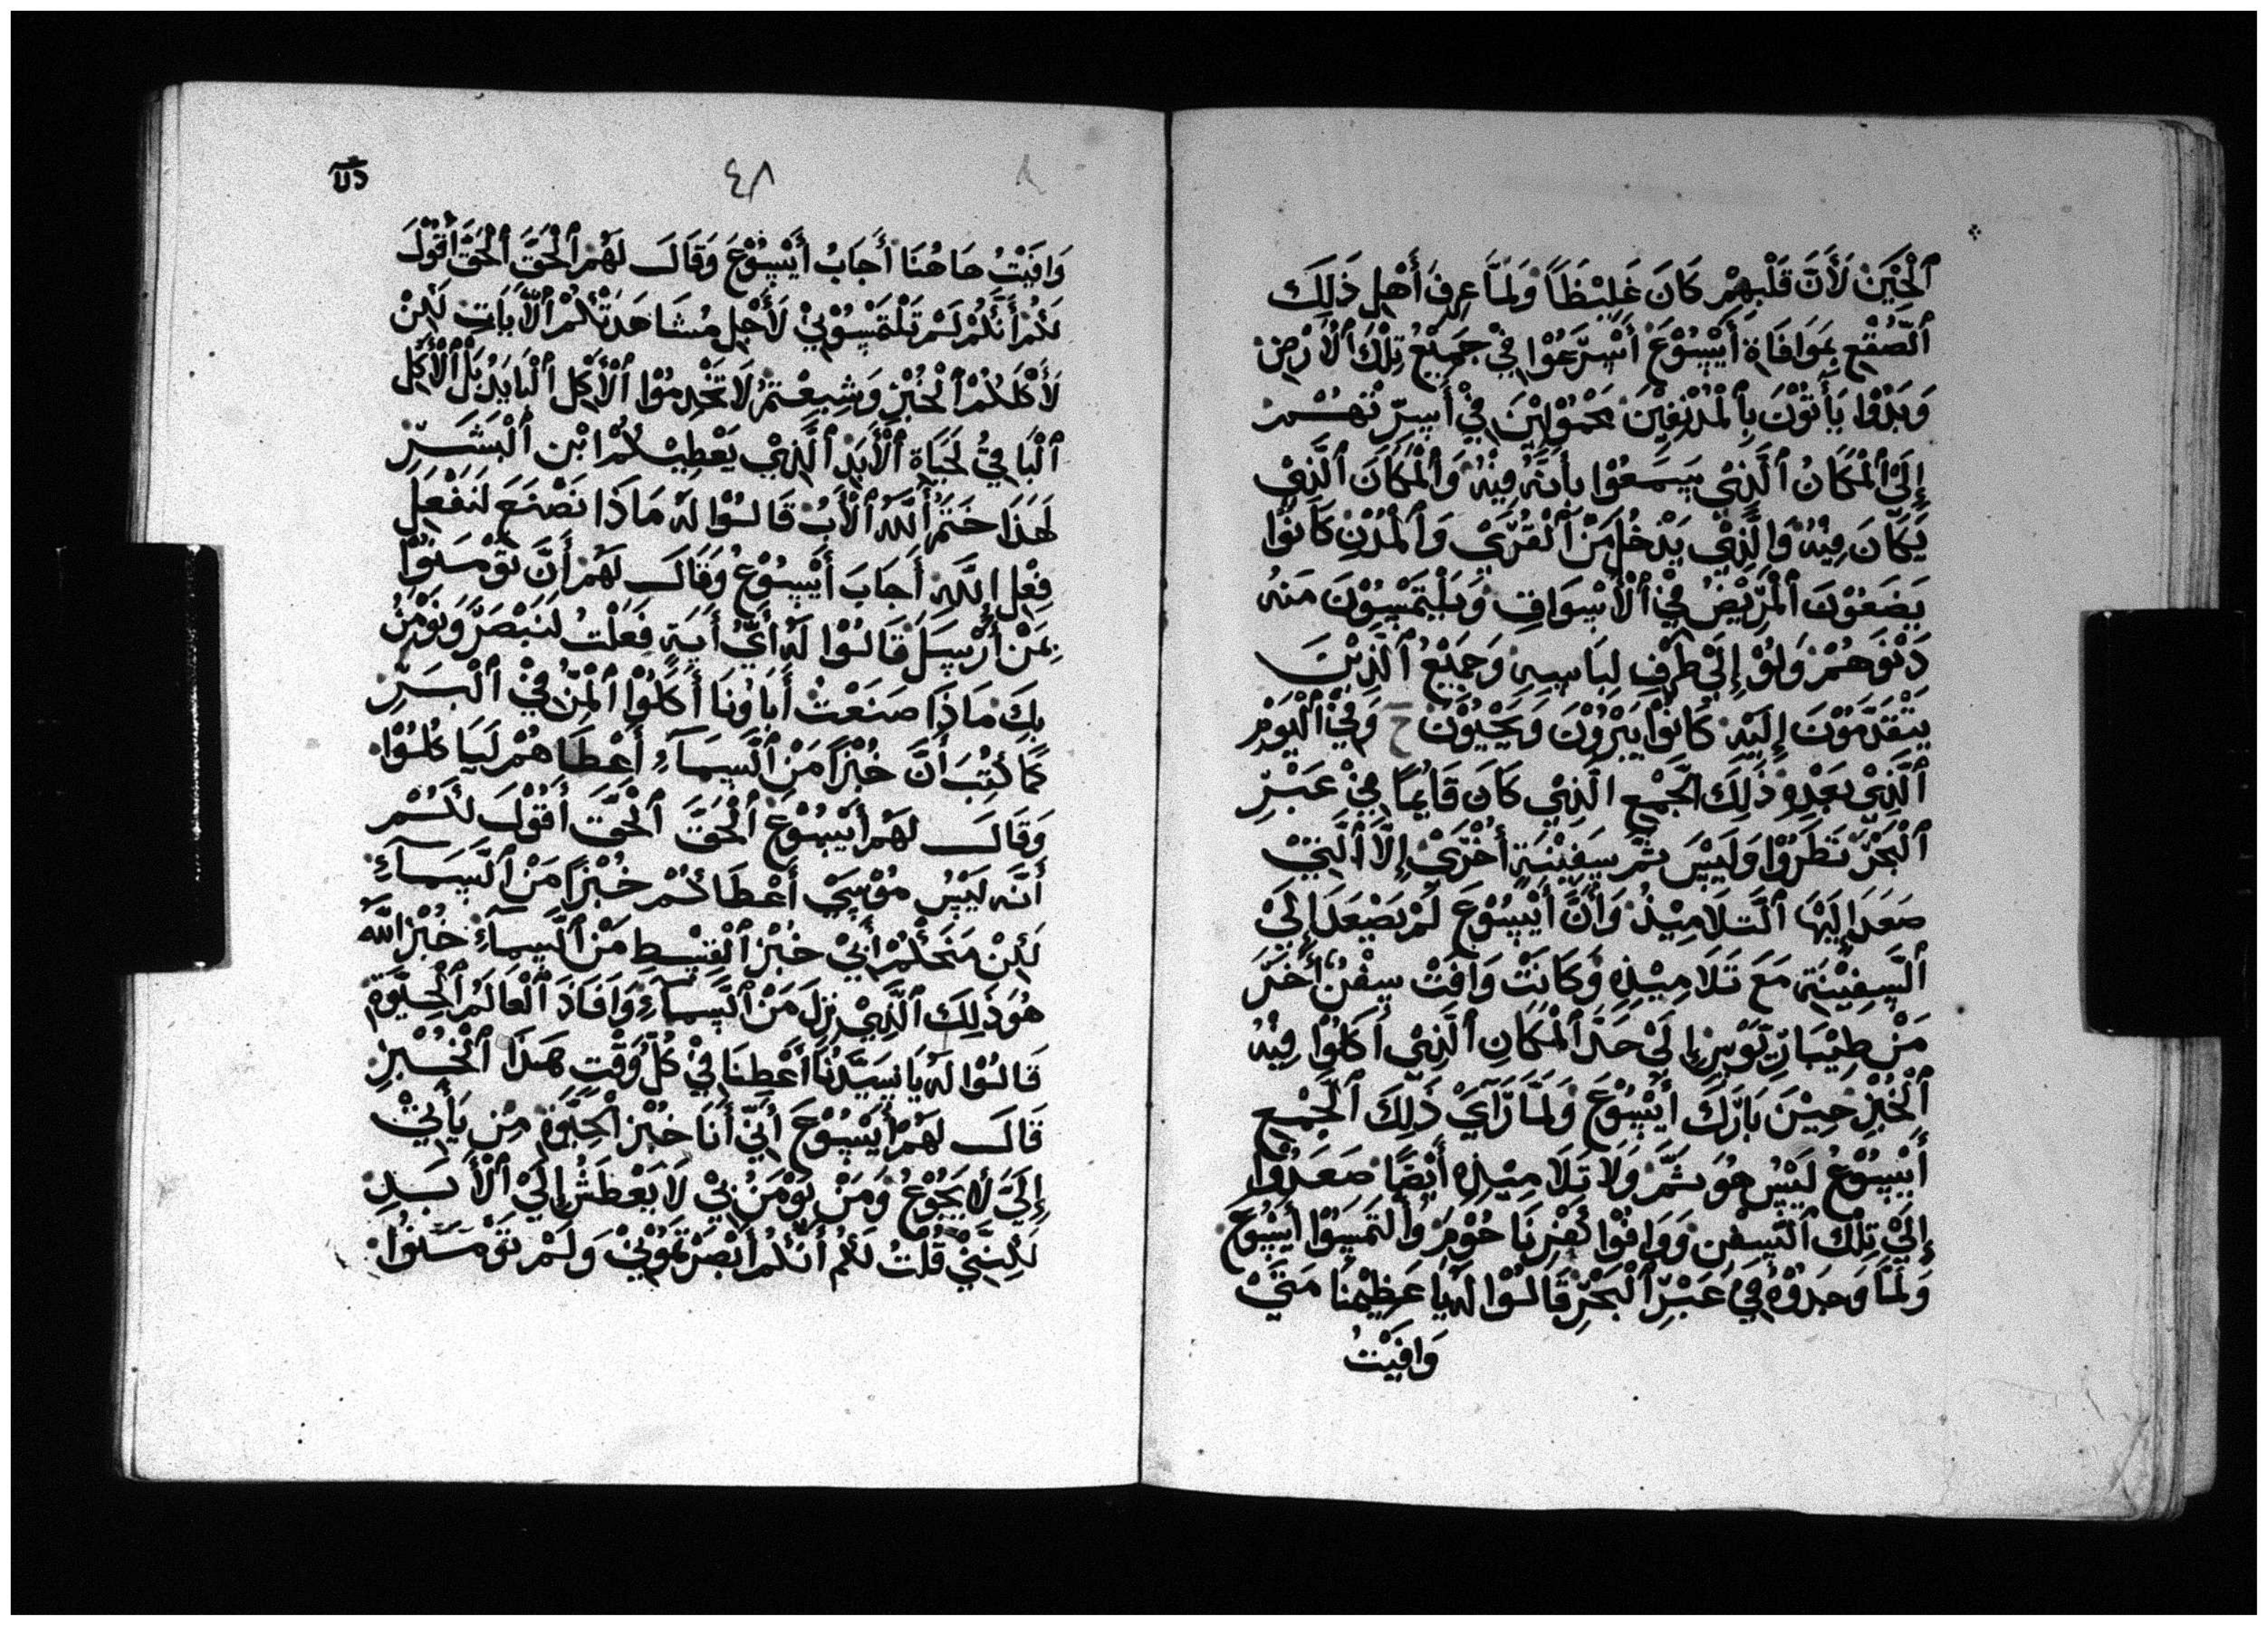 ٱلْخُبْزِ لَأَنَّ قَلْبِهِمْ كَانَ غَلِيْظَاً وَلَمَّا عِرِفَ أَهْلِ ذَلِكَ
ٱلصُّقْعِ بِمَوَافَاةِ أَيْسُوْعَ أَسْرَعُوْا فِيْ جَمِيْعُ تِلْكَ ٱلْأَرْضِ
وَبَدُوْا يَأْتُوْنَ بِٱلْمُدْنِفِيْنَ مَحْمُوْلِيْنَ فِيْ أَسِرَّتْهُمْ
إِلَىْ ٱلْمَكَانُ ٱلَّذِيْ يَسْمَعُوْا بِأَنَّهُ فِيْهُ وَٱلْمَكَانَ ٱلَّذِيْ
يَكَانَ فِيْهُ وَالَّذِيْ يَدْخُلُ مَنْ ٱلْقُرَىْ وَٱلْمُدْنِ كَانُوْا
يَضَعُوْنَ ٱلْمَرْيْضُ فِيْ ٱلْأَسْوَاقِ وَيَلْتَمْسُوْنَ مَنْهُ
دَنُوَهُمْ وَلَوْ إِلَىْ طَرَفِ لِبَاسِهِ وَجَمِيْعُ ٱلَّذِيْنَ
يَتْقَدَّمُوْنَ إِلَيْهِ كَانُوْا يَبْرُوْنَ وَيَحْيُوْنَ ح وَفِيْ ٱلْيَوْمِ
ٱلَّذِيْ بَعْدِهِ ذَلِكَ ٱلْجَمْعِ الَّذِيْ كَانَ قَايِمَاً فِيْ عَبْرِ
ٱلْبَحْرِ نَظَرُوْا وَلَيْسَ ثَمَّ سَفِيْنَةٍ أُخْرَىْ إِلَّا ٱلَّتِيْ
صَعَدَ إِلَيْهَا ٱلتَّلَامِيْذُ وَأَنَّ أَيْسُوْعَ لَمْ يَصْعَدَ إِلَىْ
ٱلسَّفِيْنَةِ مَعَ تَلَامِيْذِهِ وَكَانَتْ وَافَتْ سِفْنُ أُخَرَ
مَنْ طِيْبَارِيْوْسِ إِلَىْ حَدَّ ٱلْمَكَانِ ٱلَّذِيْ أَكَلُوْا فِيْهُ
ٱلْخُبْزِ حِيْنَ بَارَكَ أَيْسُوْعَ وَلَمَّا رَآيَ ذَلِكَ ٱلْجَمْعِ
أَيْسُوْعُ لَيْسُ هُوَ ثَمَّ وَلَا تَلَامِيْذِهِ أَيْضَاً صَعَدُوْا
إِلَىْ تِلْكَ ٱلسُّفْنِ وَوَافُوْا كَفْرِنَاحُوْمِ وَٱلتَمَسُوْا أَيْسُوْعَ
وَلَمَّا وَجَدُوْهُ فِيْ عَبْرِ ٱلْبَحْرِ قَالُوْا لَهُ يَا عَظِيْمُنَا مَتَىْ
وَافِيْتُ
٤٨
وَافَيْتُ هَاهُنَا أَجَابُ أَيْسُوْعَ وَقَالَ لَهُمْ ٱلْحَقَّ ٱلْحَقَّ أَقُوْلَ
لَكُمْ أَنَّكُمْ لَمْ تَلْتَمْسُوْنِيْ لَأَجْلِ مُشَاهَدَتْكُمْ ٱلْآيَاتِ لَكِنْ
لَأَكْلَكُمْ ٱلْخُبْزِ وَشِبِعْتِمُ لَا تَخْدِمُوْا ٱلْأَكِلِ ٱلْبَايِدُ بَلْ ٱلْأَكِلِ
ٱلْبَاقِيْ لَحَيَاةِ ٱلْأَبَدِ ٱلَّذِيْ يَعْطِيْكُمْ ابْنِ ٱلْبَشَرِ
لَهَذَا خَتَمُ ٱللَّهُ ٱلْأَبُ قَالُوْا لَهُ مَاذَا نَصْنَعَ لَنَفْعَلِ
فِعْلِ إِللَّهِ أَجَابَ أَيْسُوْعُ وَقَالَ لَهُمْ أَنَّ تَوْمَنُوْا
بِمَنْ أَرْسَلَ قَالُوْا لَهُ أَيُّ أَيَةٍ فَعَلْتُ لَنَبْصَرُ وَنَوْمَنُ
بِكَ مَاذَا صَنَعْتُ أَبَاؤنَا أَكَلُوْا ٱلْمَنُّ فِيْ ٱلْبَرِّ
كَمَا كُتِبَ أَنَّ خُبْزَاً مَنْ ٱلسَّمَآءُ أَعْطَاهُمْ لَيَاكُلُوْا
وَقَالَ لَهُمْ أَيْسُوْعَ ٱلْحَقَّ ٱلْحَقَّ أَقُوْلَ لَكُمْ
أَنَّه لَيْسُ مُوْسَىْ أَعْطَاكُمْ خُبْزَاً مَنْ ٱلسَّمَآءِ
لَكِنْ مَنَحَكُمْ أَبِيْ خُبْزَ ٱلْقِسْطِ مَنْ ٱلسَّمَآءِ خُبْزَ اللَّه
هُوَ ذَلِكَ ٱلَّذِيْ نِزِلَ مَنْ ٱلسَّمَآءِ وَافَادَ ٱلْعَالَمُ ٱلْحَيَوَةِ
قَالُوْا لَهُ يَا سَيَّدُنَا أَعْطِنَا فِيْ كُلَّ وَقْتِ هَذَا ٱلْخُبْزِ
قَالَ لَهُمْ أَيْسُوْعَ أَنِّيْ أَنَا خُبْزِ ٱلْحَيَوَةِ مِنْ يَأْتِيْ
إِلَيَّ لَا يَجُوْعُ وَمَنْ يَوْمَنُ بِيْ لَا يَعْطَشُ إِلَىْ ٱلْأَبَدِ
لَكِنِّيْ قُلْتُ لَكُمْ أَنَّكُمْ أَبْصَرْتَمُوْنِيْ وَلَمْ تَوْمَنُوْا